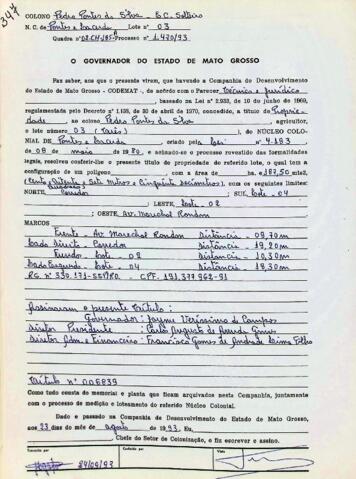 347
COLONO Pedro Pontes da Silva - B.C. Solteiro
N. C. de Pontes e Lacerda Lote n.º 03
Quadra n.º 02.CH.185-A Processo n.º 1.470/93
O GOVERNADOR DO ESTADO DE MATO GROSSO
Faz saber, aos que o presente virem, que havendo a Companhia de Desenvolvimento
do Estado de Mato Grosso - CODEMAT -, de acordo com o Parecer Técnico e Jurídico
, baseado na Lei n.º 2.938, de 10 de junho de 1969,
regulamentada pelo Decreto n.º 1.138, de 30 de abril de 1970, concedido, a título de Proprie-
dade, ao colono Pedro Pontes da Silva, agricultor,
o lote número 03 (Três), do NÚCLEO COLO-
NIAL DE Pontes e Lacerda, criado pela Lei 4.183
de 08 de maio de 80, e achando-se o processo revestido das formalidades
legais, resolveu conferir-lhe o presente título de propriedade do referido lote, o qual tem a
configuração de um polígono com a área de ha. e 187,50 mil,
(Cento e Oitenta e Sete Metros e Cinquenta decímetros), com os seguintes limites:
Quadrados
NORTE, Corredor; SUL, Lote - 04
; LESTE, Lote - 02
; OESTE, Av. Marechal Rondon
MARCOS
Frente - Av. Marechal Rondon Distância - 09,70m
Lado Direito - Corredor Distância - 19,20m
Fundo - Lote - 02 Distância - 10,30m
Lado Esquerdo - Lote - 04 Distância - 18,30m
RG. nº 330.171-SSP/RO. - CPF. 191.377.962-91
Assinaram o presente título:
Governador: Jayme Veríssimo de Campos
Diretor Presidente: Carlos Augusto de Arruda Gomes
Diretor Adm. e Financeiro: Francisco Gomes de Andrade Lima Filho
Título nº 006839
Como tudo consta do memorial e planta que ficam arquivados nesta Companhia, juntamente
com o processo de medição e loteamento do referido Núcleo Colonial.
Dado e passado na Companhia de Desenvolvimento do Estado de Mato Grosso,
aos 23 dias do mês de agosto de 1993. Eu,
, Chefe do Setor de Colonização, o fiz escrever e assino.
Transcrito por
Conferido por
Visto
24/09/93